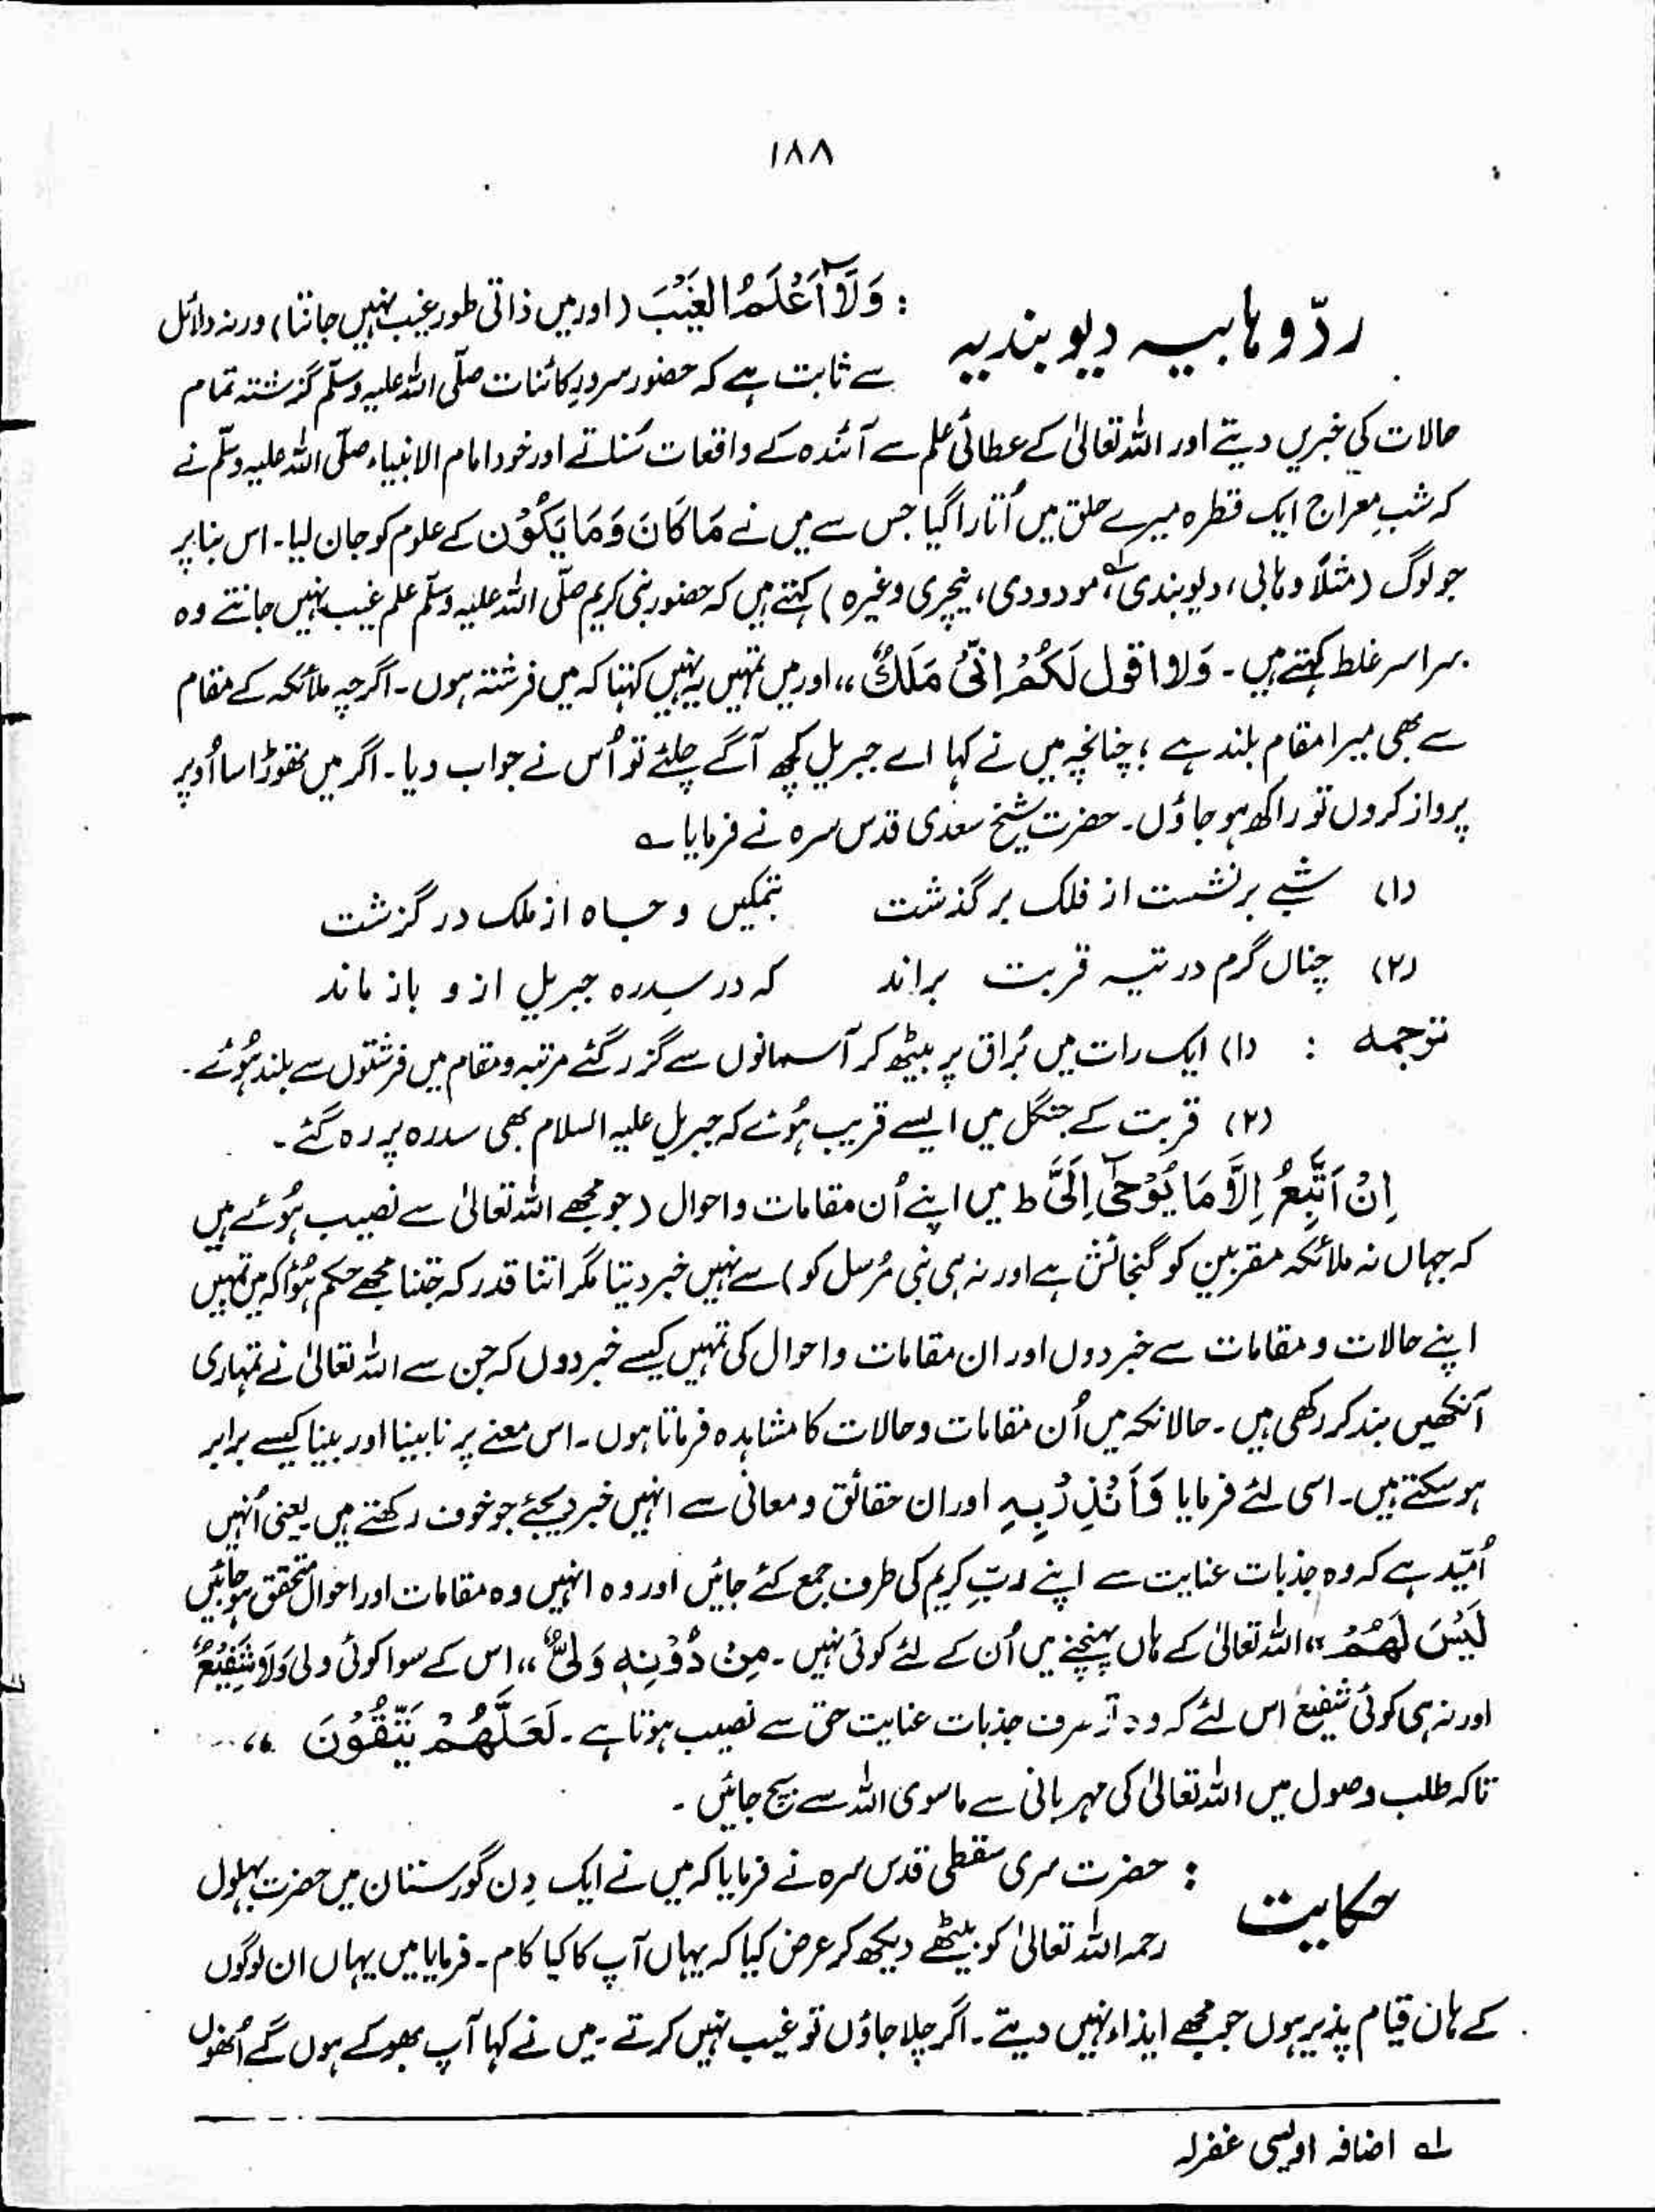 ۱۸۸
ردّ وہابیہ دیوبندیہ : وَلَآ اَعْلَمُ الْغَیْبَ (اور میں ذاتی طور غیب نہیں جانتا) ورنہ دلائل
سے ثابت ہے کہ حضور سرورِ کائنات صلّی اللہ علیہ وسلّم گزشتہ تمام
حالات کی خبریں دیتے اور اللہ تعالیٰ کے عطائی علم سے آئندہ کے واقعات سُناتے اور خود امام الانبیاء صلّی اللہ علیہ وسلّم نے
کہ شبِ معراج ایک قطرہ میرے حلق میں اُتارا گیا جس سے میں نے مَا کَانَ وَمَا یَکُوْن کے علوم کو جان لیا۔ اس بنا پر
جو لوگ (مثلاً وہابی، دیوبندی، مودودی، نیچری وغیرہ)؂۱ کہتے ہیں کہ حضور نبی کریم صلّی اللہ علیہ وسلّم علم غیب نہیں جانتے وہ
سراسر غلط کہتے ہیں۔ وَلا اقول لَکُمْ اِنِّیْ مَلَکٌ ،، اور میں تمہیں یہ نہیں کہتا کہ میں فرشتہ ہوں۔ اگرچہ ملائکہ کے مقام
سے بھی میرا مقام بلند ہے ؛ چنانچہ میں نے کہا اے جبریل کچھ آگے چلئے تو اُس نے جواب دیا۔ اگر میں تھوڑا سا اُوپر
پرواز کروں تو راکھ ہو جاؤں۔ حضرت شیخ سعدی قدس سرہ نے فرمایا ؎
(۱) شبے بر نشست از فلک بر گذشت بتمکیں و جاہ از ملک در گزشت
(۲) چناں گرم در تیہ قربت براند کہ در سدرہ جبریل از و باز ماند
ترجمہ : (۱) ایک رات میں بُراق پر بیٹھ کر آسمانوں سے گزر گئے مرتبہ و مقام میں فرشتوں سے بلند ہُوئے۔
(۲) قربت کے جنگل میں ایسے قریب ہُوئے کہ جبریل علیہ السلام بھی سدرہ پر رہ گئے۔
اِنْ اَتَّبِعُ اِلَّا مَا یُوْحٰٓی اِلَیَّ ط میں اپنے اُن مقامات و احوال (جو مجھے اللہ تعالیٰ سے نصیب ہُوئے ہیں
کہ جہاں نہ ملائکہ مقربین کو گنجائش ہے اور نہ ہی نبی مُرسل کو) سے نہیں خبر دیتا مگر اتنا قدر کہ جتنا مجھے حکم ہُوا کہ میں تمہیں
اپنے حالات و مقامات سے خبر دوں اور ان مقامات و احوال کی تمہیں کیسے خبر دوں کہ جن سے اللہ تعالیٰ نے تمہاری
آنکھیں بند کر رکھی ہیں۔ حالانکہ میں اُن مقامات و حالات کا مشاہدہ فرماتا ہوں۔ اس معنے پر نابینا اور بینا کیسے برابر
ہو سکتے ہیں۔ اسی لئے فرمایا وَأَنْذِرْ بِہِ اور ان حقائق و معانی سے انہیں خبر دیجئے جو خوف رکھتے ہیں یعنی اُنہیں
اُمّید ہے کہ وہ جذبات عنایت سے اپنے ربِّ کریم کی طرف جمع کئے جائیں اور وہ انہیں وہ مقامات اور احوال متحقق ہو جائیں
لَیْسَ لَھُمْ ،، اللہ تعالیٰ کے ہاں پہنچنے میں اُن کے لئے کوئی نہیں۔ مِنْ دُوْنِہٖ وَلِیٌّ ،، اس کے سوا کوئی ولی وَلَا شَفِیْعٌ
اور نہ ہی کوئی شفیع اس لئے کہ وہ تو صرف جذبات عنایت حق سے نصیب ہوتا ہے۔ لَعَلَّھُمْ یَتَّقُوْنَ ،،
تاکہ طلب وصول میں اللہ تعالیٰ کی مہربانی سے ماسوی اللہ سے بچ جائیں۔
حکایت : حضرت سری سقطی قدس سرہ نے فرمایا کہ میں نے ایک دِن گورستان میں حضرت بہلول
رحمہ اللہ تعالیٰ کو بیٹھے دیکھ کر عرض کیا کہ یہاں آپ کا کیا کام۔ فرمایا میں یہاں ان لوگوں
کے ہاں قیام پذیر ہوں جو مجھے ایذاء نہیں دیتے۔ اگر چلا جاؤں تو غیب نہیں کرتے۔ میں نے کہا آپ بھوکے ہوں گے اُنھوں
؂۱ اضافہ اویسی غفرلہ